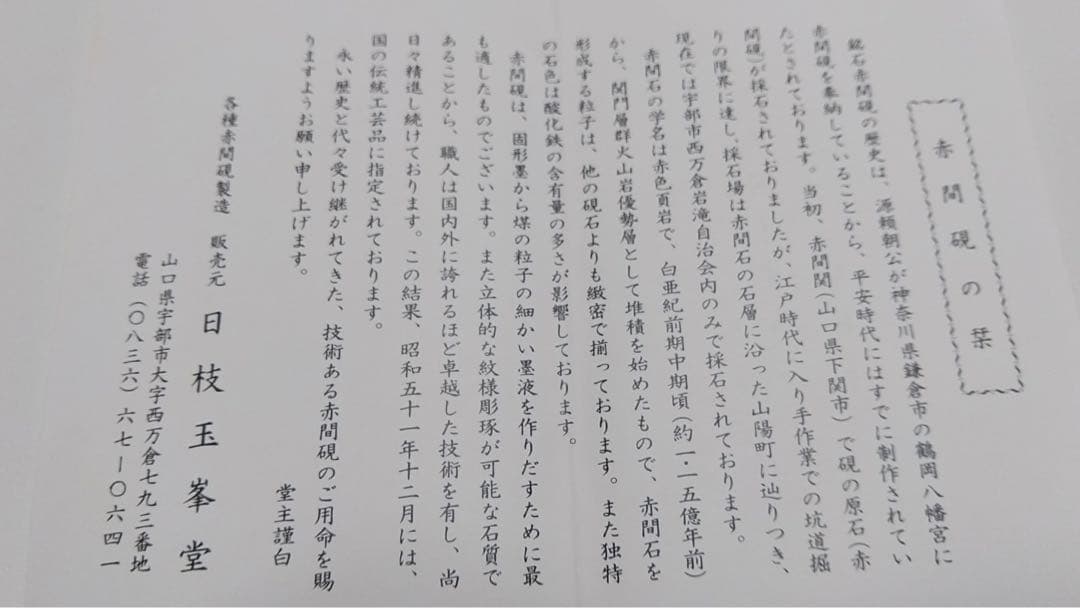 赤間硯の栞
銘石赤間硯の歴史は、源頼朝公が神奈川県鎌倉市の鶴岡八幡宮に
赤間硯を奉納していることから、平安時代にはすでに制作されてい
たとされております。当初、赤間関(山口県下関市)で硯の原石(赤
間硯)が採石されておりましたが、江戸時代に入り手作業での坑道掘
りの限界に達し、採石場は赤間石の石層に沿った山陽町に辿りつき、
現在では宇部市西万倉岩滝自治会内のみで採石されております。
赤間石の学名は赤色頁岩で、白亜紀前期中期頃(約一・一五億年前)
から、関門層群火山岩優勢層として堆積を始めたもので、赤間石を
形成する粒子は、他の硯石よりも緻密で揃っております。また独特
の石色は酸化鉄の含有量の多さが影響しております。
赤間硯は、固形墨から煤の粒子の細かい墨液を作りだすために最
も適したものでございます。また立体的な紋様彫琢が可能な石質で
あることから、職人は国内外に誇れるほど卓越した技術を有し、尚
日々精進し続けております。この結果、昭和五十一年十二月には、
国の伝統工芸品に指定されております。
永い歴史と代々受け継がれてきた、技術ある赤間硯のご用命を賜
りますようお願い申し上げます。
堂主謹白
各種赤間硯製造 販売元 日枝玉峯堂
山口県宇部市大字西万倉七九三番地
電話(〇八三六)六七ー〇六四一